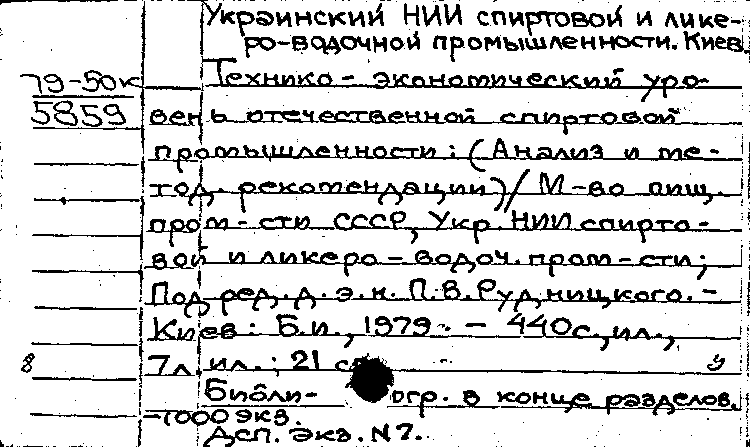 Украинский НИИ спиртовой и лике-
ро-водочной промышленности. Киев.
79-50к
Технико-экономический уро-
5859
вень отечественной спиртовой
промышленности: (Анализ и ме-
тод. рекомендации)/М-во пищ.
пром-сти СССР, Укр. НИИ спирто-
вой и ликеро-водоч. пром-сти;
Под ред. д.э.н. П.В.Рудницкого. -
Киев: Б.и., 1979. - 440с., ил.,
8
7л. ил.; 21 см
Библи- огр. в конце разделов.
-1000 экз.
Дсп. Экз. N 7.